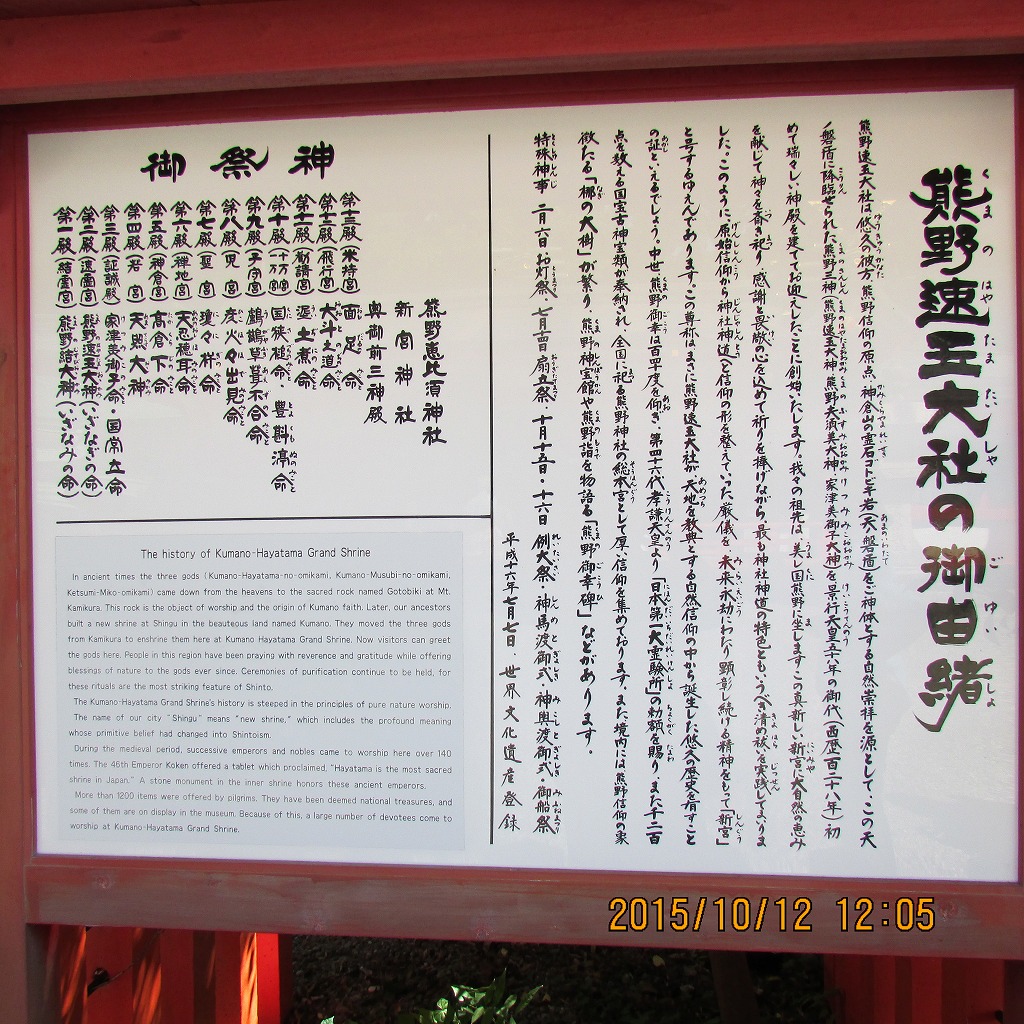 熊野速玉大社の御由緒
熊野速玉大社は悠久の彼方、熊野信仰の原点、神倉山の霊石ゴトビキ岩(天ノ磐盾)をご神体とする自然崇拝を源として、この天
ノ磐盾に降臨せられた熊野三神(熊野速玉大神、熊野夫須美大神、家津美御子大神)を景行天皇五八年の御代(西歴百二十八年)初
めて瑞々しい神殿を建ててお迎えしたことに創始いたします。我々の祖先は、美し国熊野に坐しますこの真新しい新宮に大自然の恵み
を献じて神々を斎き祀り、感謝と畏敬の心を込めて祈りを捧げながら最も神社神道の特色ともいうべき清め祓いを実践してまいりま
した。このように、原始信仰から神社神道へと信仰の形を整えていった厳儀を、未来永劫にわたり顕彰し続ける精神をもって「新宮」
と号するゆえんであります。この尊称は、まさに熊野速玉大社が、天地を教典とする自然信仰の中から誕生した悠久の歴史を有すこと
の証といえるでしょう。中世、熊野御幸は百四十度を仰ぎ、第四十六代孝謙天皇より「日本第一大霊験所」の勅額を賜り、また千二百
点を数える国宝古神宝類が奉納され、全国に祀る熊野神社の総本宮として厚い信仰を集めております。また境内には熊野信仰の象
徴たる「梛の大樹」が繁り、熊野神宝館や熊野詣を物語る「熊野御幸碑」などがあります。
特殊神事 二月六日お灯祭、七月十四日扇立祭、十月十五日・十六日 例大祭・神馬渡御式・神輿渡御式・御船祭
平成十六年七月七日、世界文化遺産登録
御祭神
第一殿(結霊宮)熊野結大神(いざなみの命)
第二殿(速霊宮)熊野速玉大神(いざなぎの命)
第三殿(証誠殿)家津美御子命・国常立命
第四殿(若宮)天照大神
第五殿(神倉宮)高倉下命
第六殿(禅地宮)天忍穂耳命
第七殿(聖宮)瓊々杵命
第八殿(児宮)彦火々出見命
第九殿(子守宮)鸕鶿草葺不合命
第十殿(一万宮 十万宮)国狭槌命、豊斟渟命
第十一殿(勧請宮)泥土煮命
第十二殿(飛行宮)大斗之道命
第十三殿(米持宮)面足命
奥御前三神殿
新宮神社
熊野恵比須神社
The history of Kumano-Hayatama Grand Shrine
In ancient times the three gods (Kumano-Hayatama-no-omikami, Kumano-Musubi-no-omikami,
Ketsumi-Miko-omikami) came down from the heavens to the sacred rock named Gotobiki at Mt.
Kamikura. This rock is the object of worship and the origin of Kumano faith. Later, our ancestors
built a new shrine at Shingu in the beauteous land named Kumano. They moved the three gods
from Kamikura to enshrine them here at Kumano Hayatama Grand Shrine. Now visitors can greet
the gods here. People in this region have been praying with reverence and gratitude while offering
blessings of nature to the gods ever since. Ceremonies of purification continue to be held, for
these rituals are the most striking feature of Shinto.
The Kumano-Hayatama Grand Shrine's history is steeped in the principles of pure nature worship.
The name of our city "Shingu" means "new shrine," which includes the profound meaning
whose primitive belief had changed into Shintoism.
During the medieval period, successive emperors and nobles came to worship here over 140
times. The 46th Emperor Koken offered a tablet which proclaimed, "Hayatama is the most sacred
shrine in Japan." A stone monument in the inner shrine honors these ancient emperors.
More than 1200 items were offered by pilgrims. They have been deemed national treasures, and
some of them are on display in the museum. Because of this, a large number of devotees come to
worship at Kumano-Hayatama Grand Shrine.
2015/10/12 12:05